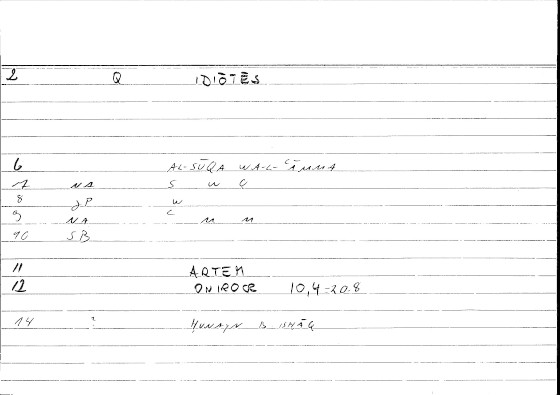 2 Q IDIŌTĒS
6 AL-SŪQA WA-L-ʿĀMMA
7 NA S W Q
8 JP W
9 NA ʿ M M
10 SB
11 ARTEM
12 ONIROCR 10,4 = 20.8
14 2 ḤUNAYN B ISḤĀQ